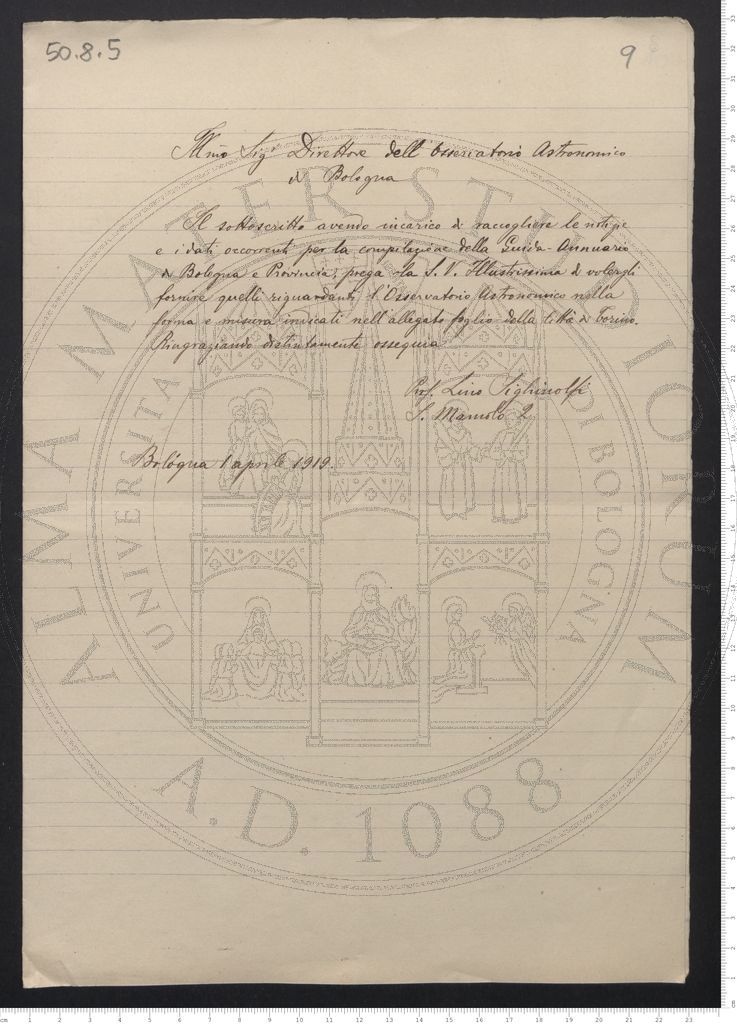 50.8.5
9
Illmo Sigr Direttore dell'Osservatorio Astronomico
di Bologna
Il sottoscritto avendo incarico di raccogliere le notizie
e i dati occorrenti per la compilazione della Guida-Annuario
di Bologna e Provincia, prega la S. V. Illustrissima di volergli
fornire quelli riguardanti l'Osservatorio Astronomico nella
forma e misura indicati nell'allegato foglio della Città di Torino.
Ringraziando distintamente ossequia
Prof. Lino Sighinolfi
S. Mamolo 2
Bologna 1 aprile 1919.
ALMA MATER STUDIORUM
UNIVERSITA DI BOLOGNA
A.D. 1088